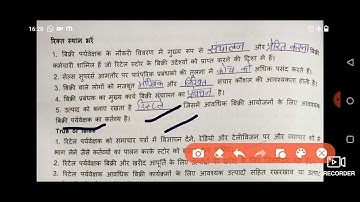 16:28
रिक्त स्थान भरें
1. बिक्री पर्यवेक्षक के नौकरी विवरण में मुख्य रूप से संचालन और प्रेरित करना बिक्री
कर्मचारी शामिल हैं जो रिटेल स्टोर के बिक्री उद्देश्यों को प्राप्त करने की दिशा में हैं।
2. सेल्स सुपरवाइजर आमतौर पर पारंपरिक प्रबंधकों की तुलना में कोच को अधिक पसंद करते हैं।
3. बिक्री वाले लोगों को मजबूत मौखिक और लिखित संचार कौशल की आवश्यकता होती है।
4. बिक्री प्रबंधक का मुख्य कार्य बिक्री संचालन का प्रबंधन है।
5. उत्पाद को बनाए रखता है जिसमें आवधिक बिक्री आयोजनों के लिए आवश्यक
बिक्री पर्यवेक्षक का कर्तव्य है।
1. रिटेल पर्यवेक्षक को समाचार पत्रों में विज्ञापन देने, रेडियो और टेलीविजन पर और व्यापार शो में
भाग लेने जैसे कर्तव्यों का पालन करके स्टोर को
2. रिटेल पर्यवेक्षक बिक्री और खरीद आपूर्ति के लिए
3. रिटेल पर्यवेक्षक आवधिक बिक्री कार्यक्रमों के लिए आवश्यक उत्पादों सहित रखरखाव या उत्पाद
RECORDER